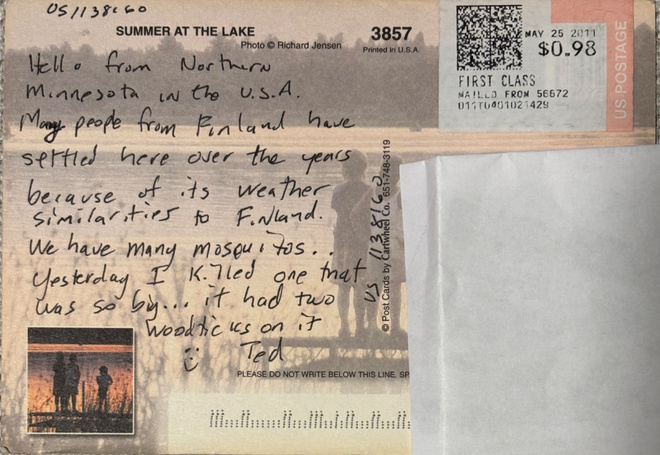 US1138160
SUMMER AT THE LAKE
Photo © Richard Jensen
3857
Printed in U.S.A.
MAY 25 2011
$0.98
US POSTAGE
FIRST CLASS
MAILED FROM 56672
011T0401021429
Hello from Northern
Minnesota in the U.S.A.
Many people from Finland have
settled here over the years
because of its weather
similarities to Finland.
We have many mosquitos..
Yesterday I killed one that
was so big... it had two
woodticks on it
Ted
US 1138160
© Post Cards by Cartwheel Co. 651-748-3119
PLEASE DO NOT WRITE BELOW THIS LINE. SP